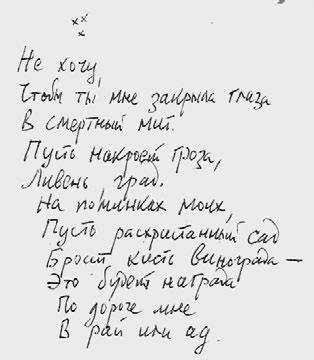 ххх
Не хочу,
Чтобы ты мне закрыла глаза
В смертный миг.
Пусть накроет гроза,
Ливень, град.
На поминках моих,
Пусть расхристанный сад
Бросит кисть винограда —
Это будет награда
По дороге мне
В рай или ад.